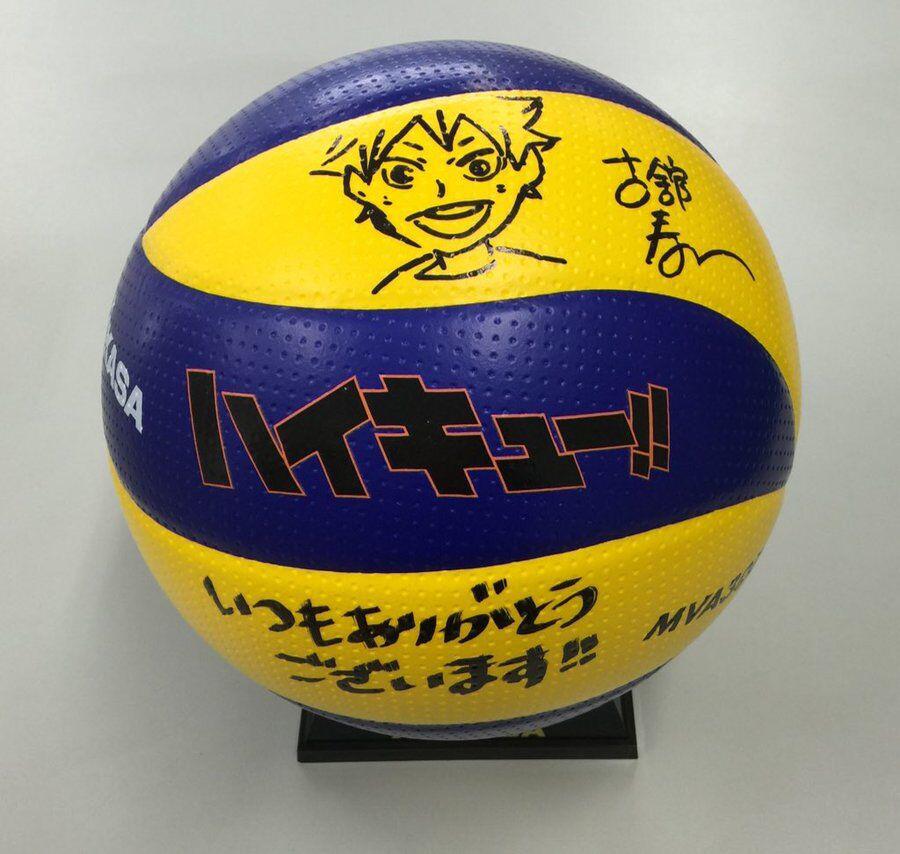 古舘
春一
KASA
ハイキュー!!
いつもありがとう
ございます!!
MVA30